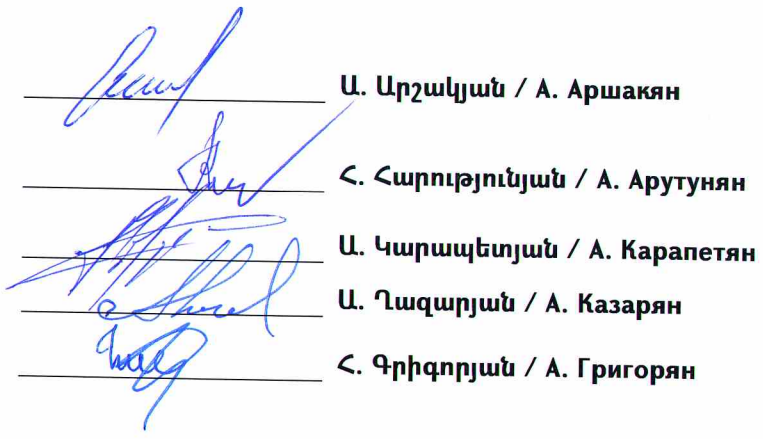 Ա. Արշակյան / А. Аршакян
Հ. Հարությունյան / А. Арутунян
Ա. Կարապետյան / А. Карапетян
Ա. Ղազարյան / А. Казарян
Հ. Գրիգորյան / А. Григорян